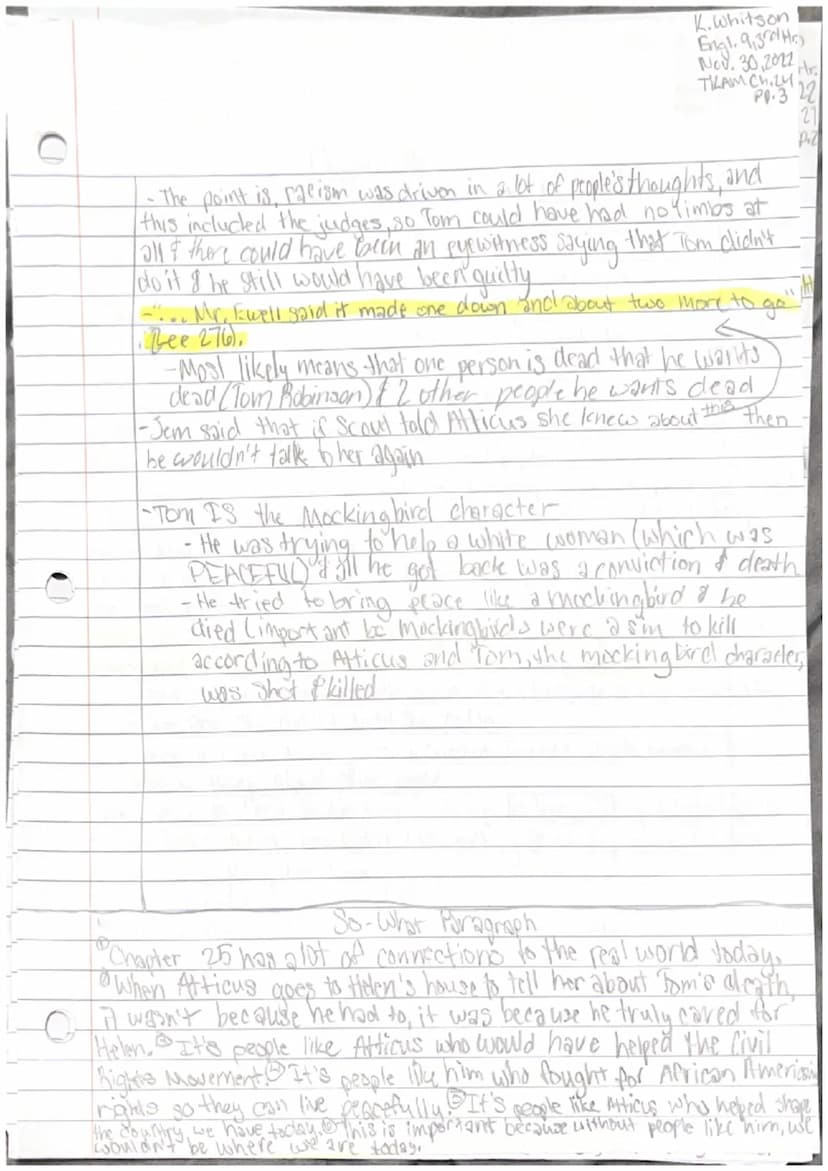 K. Whitson
Engl. 9, 3rd Hr.
Nov. 30, 2022
TKAM Ch. 24
Pp. 3
Hr.
22
27
p.2
- The point is, racism was driven in a lot of people's thoughts, and
this included the judges, so Tom could have had no limbs at
all & there could have been an eyewitness saying that Tom didn't
do it & he still would have been guilty
- "... Mr. Ewell said it made one down and about two more to go"
(Lee 276).
- Most likely means that one person is dead that he wants
dead (Tom Robinson) & 2 other people he wants dead
- Jem said that if Scout told Atticus she knew about this then
he wouldn't talk to her again
- Tom IS the Mockingbird character
- He was trying to help a white woman (which was
PEACEFUL) & all he got back was a conviction & death
- He tried to bring peace like a mockingbird & he
died (important bc mockingbirds were a sin to kill
according to Atticus and Tom, the mockingbird character,
was shot & killed
So-What Paragraph
① Chapter 25 has a lot of connections to the real world today.
② When Atticus goes to Helen's house to tell her about Tom's death,
it wasn't because he had to, it was because he truly cared for
Helen. ③ It's people like Atticus who would have helped the Civil
Rights Movement. ④ It's people like him who fought for African American
rights so they can live peacefully. ⑤ It's people like Atticus who helped shape
the country we have today. ⑥ This is important because without people like him, we
wouldn't be where we are today.